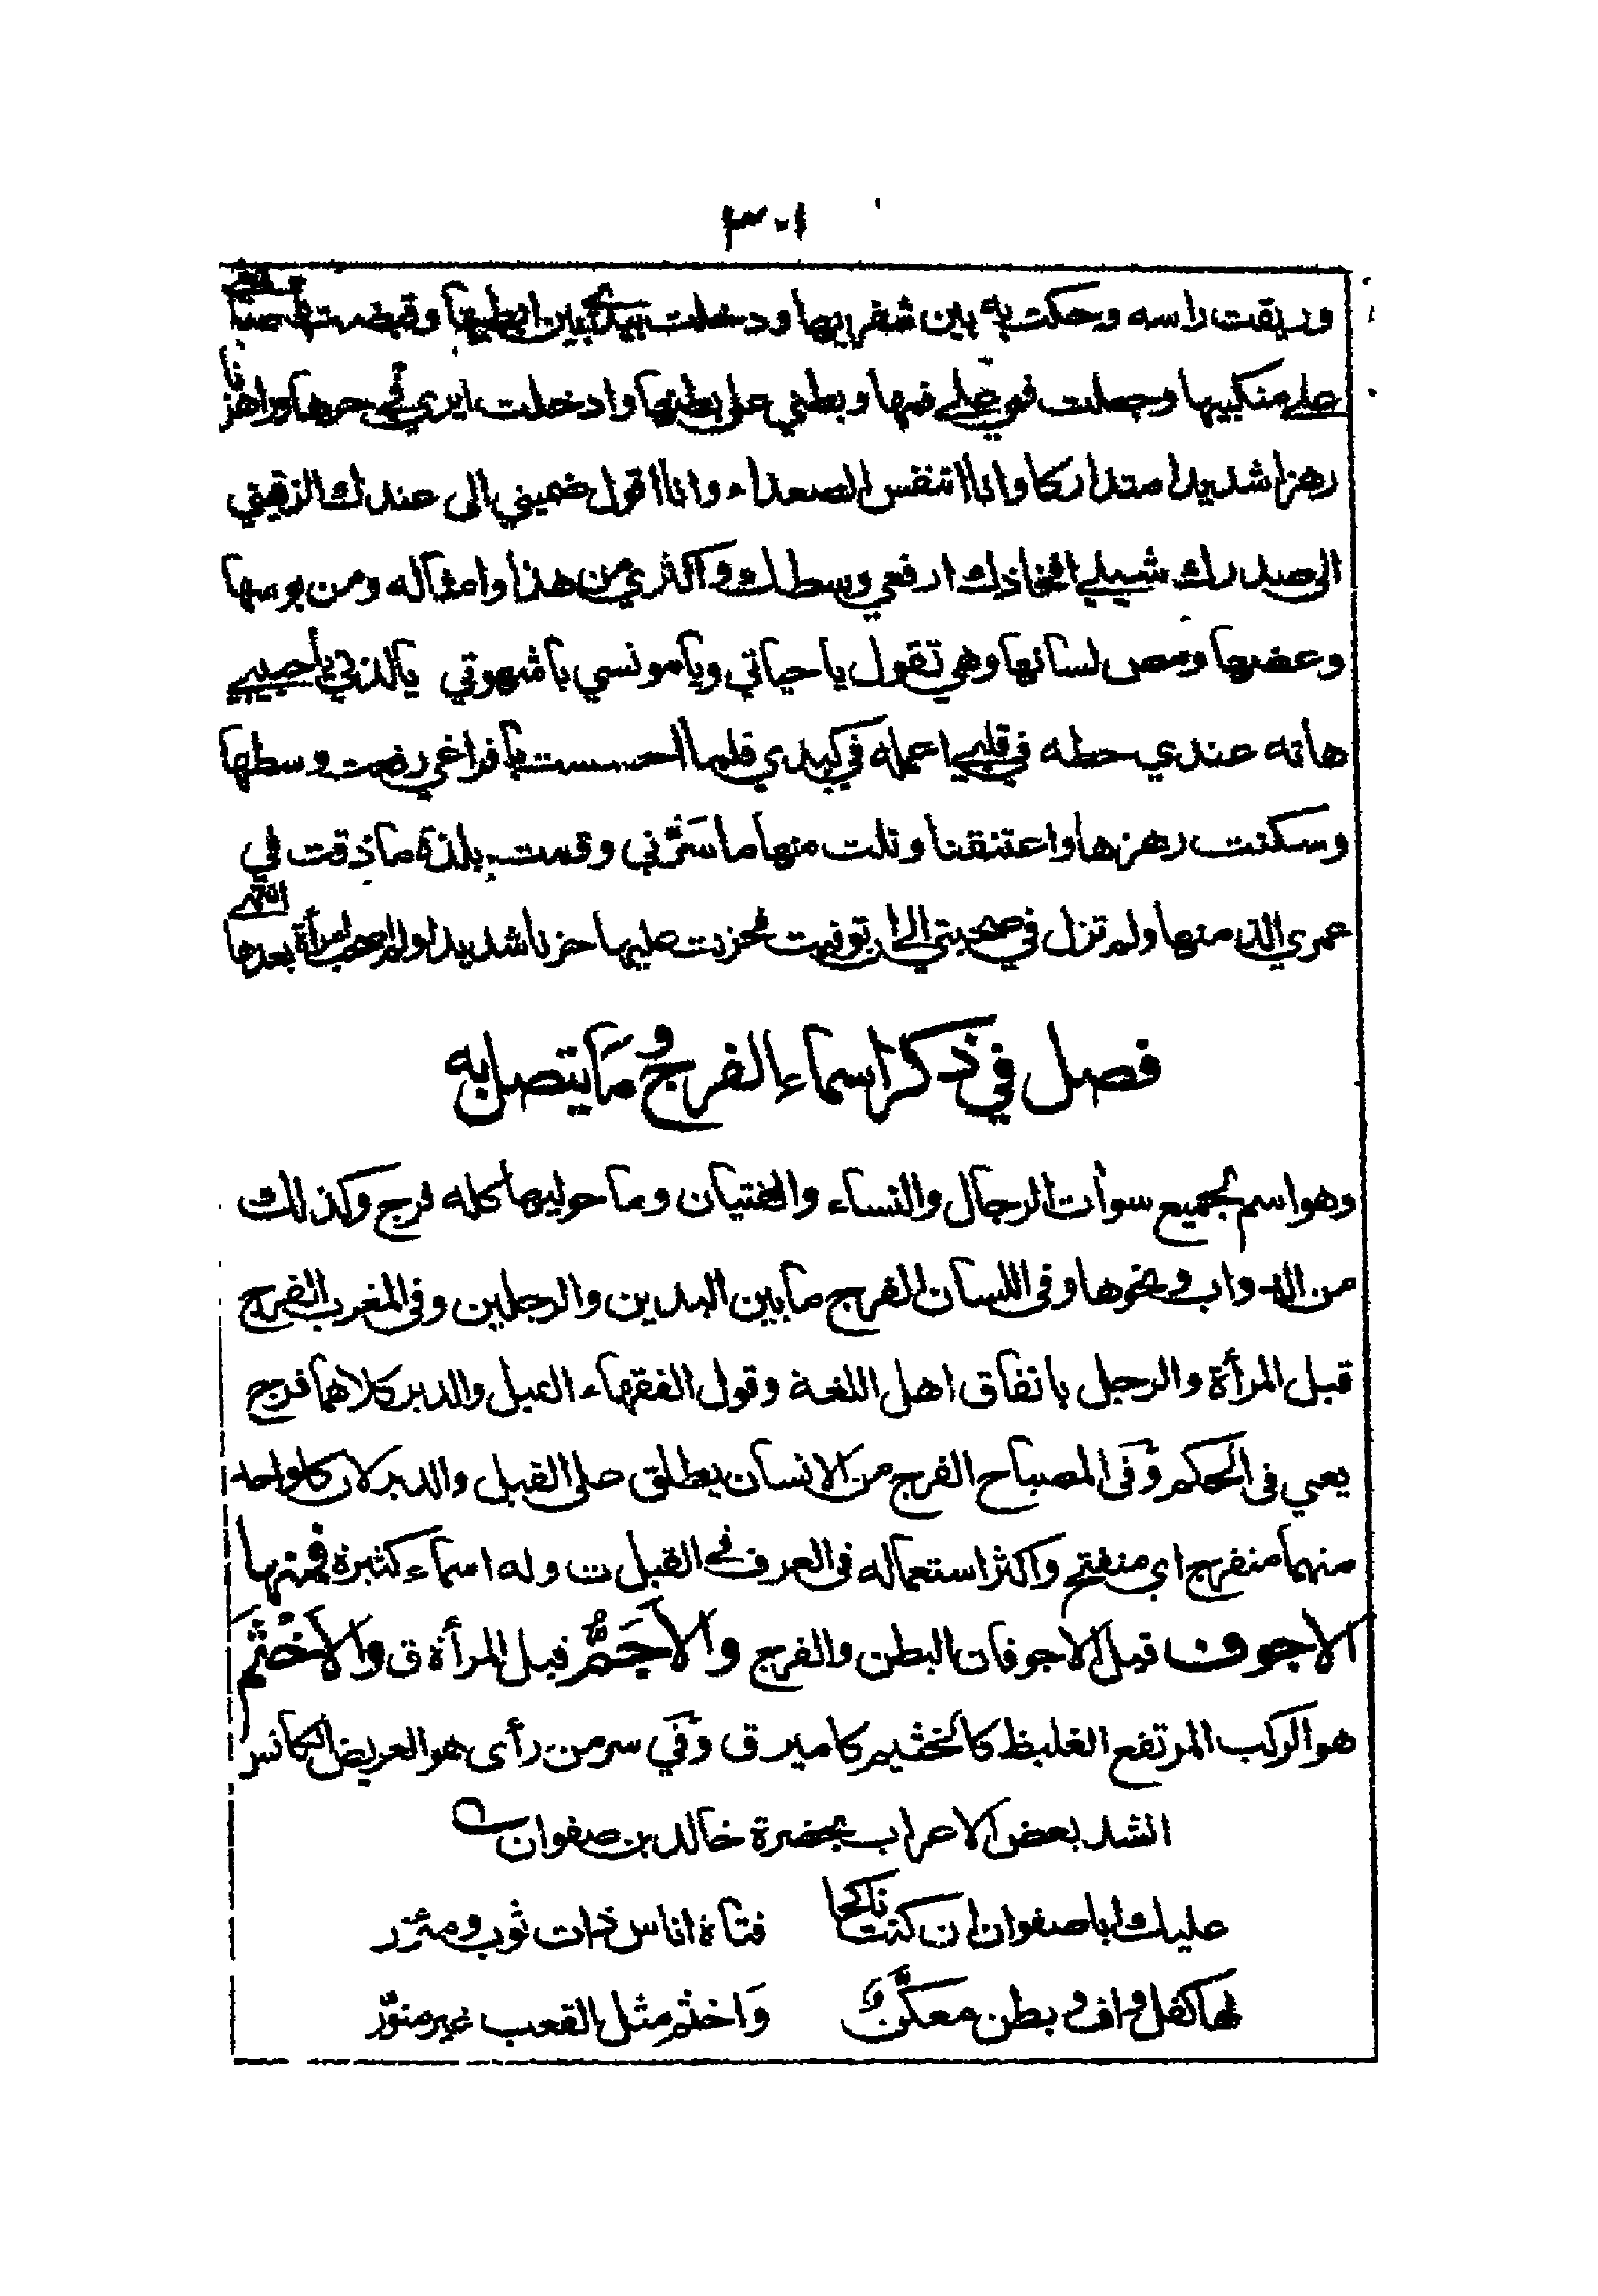 ٣٠١
وريقت راسه وحكت به بين شفريها ودخلت بيدي بين ابطيها وقبضت
على منكبيها وجعلت فمي على فمها وبطني على بطنها وادخلت ايري في حرها وانا اهز
رهزا شديدا متداركا وانا اتنفس الصعداء وانا اقول ضميني الى عندك الزقيني
الى صدرك شيلي افخاذك ارفعي وسطك واكثري من هذا وامثاله ومن بوسها
وعضها ومص لسانها وهي تقول يا حياتي ويا مونسي يا شهوتي يا لذتي يا حبيبي
هاته عندي حطه في قلبي اعمله في كبدي فلما احسست بافراغي رفعت وسطها
وسكنت رهزها واعتنقنا ونلت منها ما سرّني وقمت بلذة ما ذقت في
عمري الذ منها ولم تزل في صحبتي الى ان توفيت فحزنت عليها حزنا شديدا ولم اصحب امرأة بعدها انتهى
فصل في ذكر اسماء الفرج وما يتصل به
وهو اسم لجميع سوآت الرجال والنساء والفتيان وما حوليها كله فرج وكذلك
من الدواب ونحوها وفى اللسان الفرج ما بين اليدين والرجلين وفى المغرب الفرج
قبل المرأة والرجل باتفاق اهل اللغة وقول الفقهاء القبل والدبر كلاهما فرج
يعني فى الحكم وفى المصباح الفرج من الانسان يطلق على القبل والدبر لان كل واحد
منهما منفرج اي منفتح واكثر استعماله فى العرف في القبل ت وله اسماء كثيرة فمنها
الاجوف قيل الاجوفان البطن والفرج والاَجَمُّ قبل المرأة ق والاَخْثَم
هو الركب المرتفع الغليظ كالخثيم كامير ق وفي سر من رأى هو العريض المكانس
انشد بعض الاعراب بحضرة خالد بن صفوان
عليك ابا صفوان ان كنت ناكحا فتاة اناس ذات ثوب ومئزر
لها كفل واف وبطن معكّن واخثم مثل القعب غير منوّر